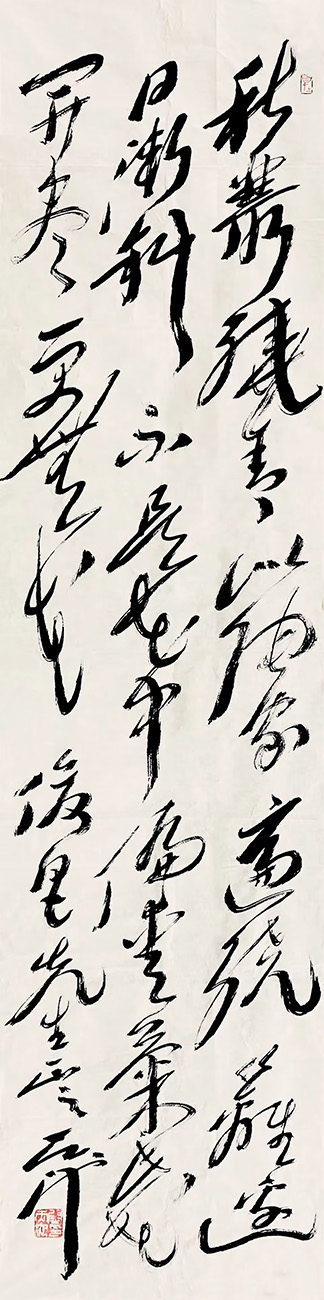 秋叢繞舍似陶家遍繞籬邊
日漸斜不是花中偏愛菊此花
開盡更無花先生